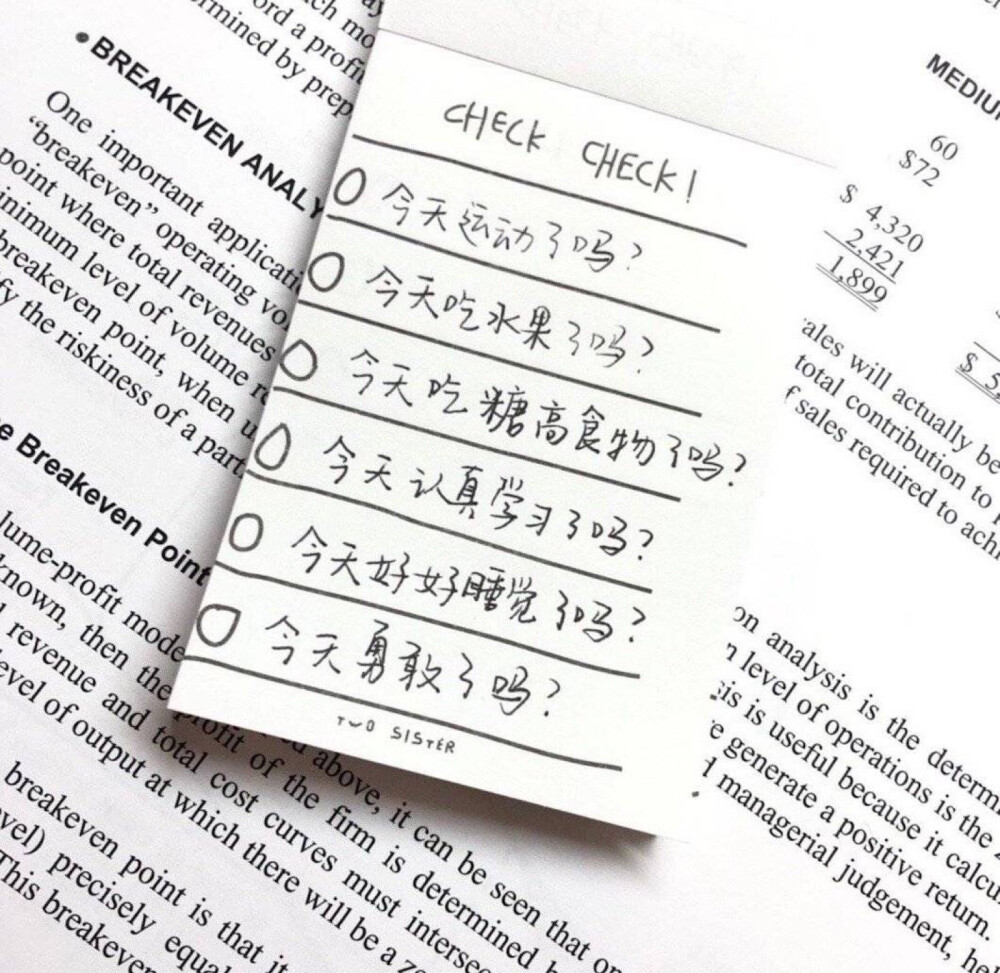 ord a profit
rmined by prep
• BREAKEVEN ANALY
One important applicati
"breakeven" operating vo
point where total revenues
inimum level of volume re
breakeven point, when u
fy the riskiness of a part
e Breakeven Point
lume-profit mode
known, then the profit of the firm is determined
revenue and total cost curves must interse
evel of output at which there will be a
above, it can be seen that
breakeven point is that
vel) precisely equal
This breakeve
CHECK CHECK!
今天运动了吗?
今天吃水果了吗?
今天吃糖高食物了吗?
今天认真学习了吗?
今天好好睡觉了吗?
今天勇敢了吗?
TWO SISTER
MEDIU
60
$72
$ 4,320
2,421
1,899
$ 5,
ales will actually be
total contribution to
f sales required to achi
on analysis is the determi
n level of operations is the
is is useful because it calcu
e generate a positive return.
d managerial judgement, he